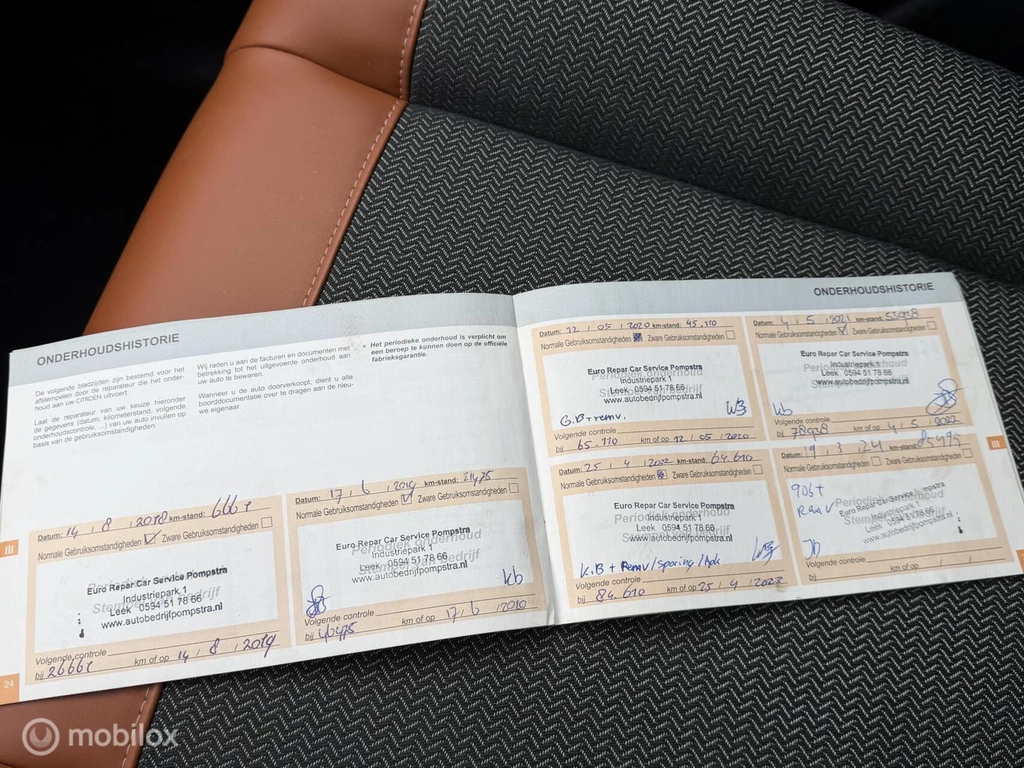 ONDERHOUDSHISTORIE
De volgende bladzijden zijn bestemd voor het
afstempelen door de reparateur die het onder-
houd aan uw CITROËN uitvoert.
Laat de reparateur van uw keuze hieronder
de gegevens (datum, kilometerstand, volgende
onderhoudscontrole, ...) van uw auto invullen op
basis van de gebruiksomstandigheden.
Wij raden u aan de facturen en documenten met
betrekking tot het uitgevoerde onderhoud aan
uw auto te bewaren.
Wanneer u de auto doorverkoopt, dient u alle
boorddocumentatie over te dragen aan de nieu-
we eigenaar.
Het periodieke onderhoud is verplicht om
een beroep te kunnen doen op de officiële
fabrieksgarantie.
Datum: 14 / 8 / 2018 km-stand:
Normale Gebruiksomstandigheden Zware Gebruiksomstandigheden
Periodiek onderhoud
Euro Repar Car Service Pompstra
Industriepark 1
Leek 0594 51 78 66
www.autobedrijfpompstra.nl
Volgende controle
bij km of op 14 / 8 / 2019
24
III
Datum: 17 / 6 / 2019 km-stand:
Normale Gebruiksomstandigheden Zware Gebruiksomstandigheden
Periodiek onderhoud
Euro Repar Car Service Pompstra
Industriepark 1
Leek 0594 51 78 66
www.autobedrijfpompstra.nl
Volgende controle
bij km of op 17 / 6 /
ONDERHOUDSHISTORIE
Datum: 12 / 05 / 2020 km-stand: 45.110
Normale Gebruiksomstandigheden Zware Gebruiksomstandigheden
Euro Repar Car Service Pompstra
Industriepark 1
Leek 0594 51 78 66
www.autobedrijfpompstra.nl
G.B + remv.
Volgende controle
bij 65.110 km of op 12 / 05 / 2020
Datum: 4 / 5 / 2021 km-stand:
Normale Gebruiksomstandigheden Zware Gebruiksomstandigheden
Euro Repar Car Service Pompstra
Industriepark 1
Leek 0594 51 78 66
www.autobedrijfpompstra.nl
Volgende controle
bij km of op 4 / 5 / 2022
Datum: 25 / 4 / 2022 km-stand: 64.610
Normale Gebruiksomstandigheden Zware Gebruiksomstandigheden
Euro Repar Car Service Pompstra
Industriepark 1
Leek 0594 51 78 66
www.autobedrijfpompstra.nl
K.B + Remv / sporing / Apk
Volgende controle
bij 84.610 km of op 25 / 4 / 2023
Datum: 19 / 3 / 24 km-stand: 85495
Normale Gebruiksomstandigheden Zware Gebruiksomstandigheden
Periodiek onderhoud
Euro Repar Car Service Pompstra
Industriepark 1
Leek 0594 51 78 66
www.autobedrijfpompstra.nl
Volgende controle
bij km of op / /
III
mobilox